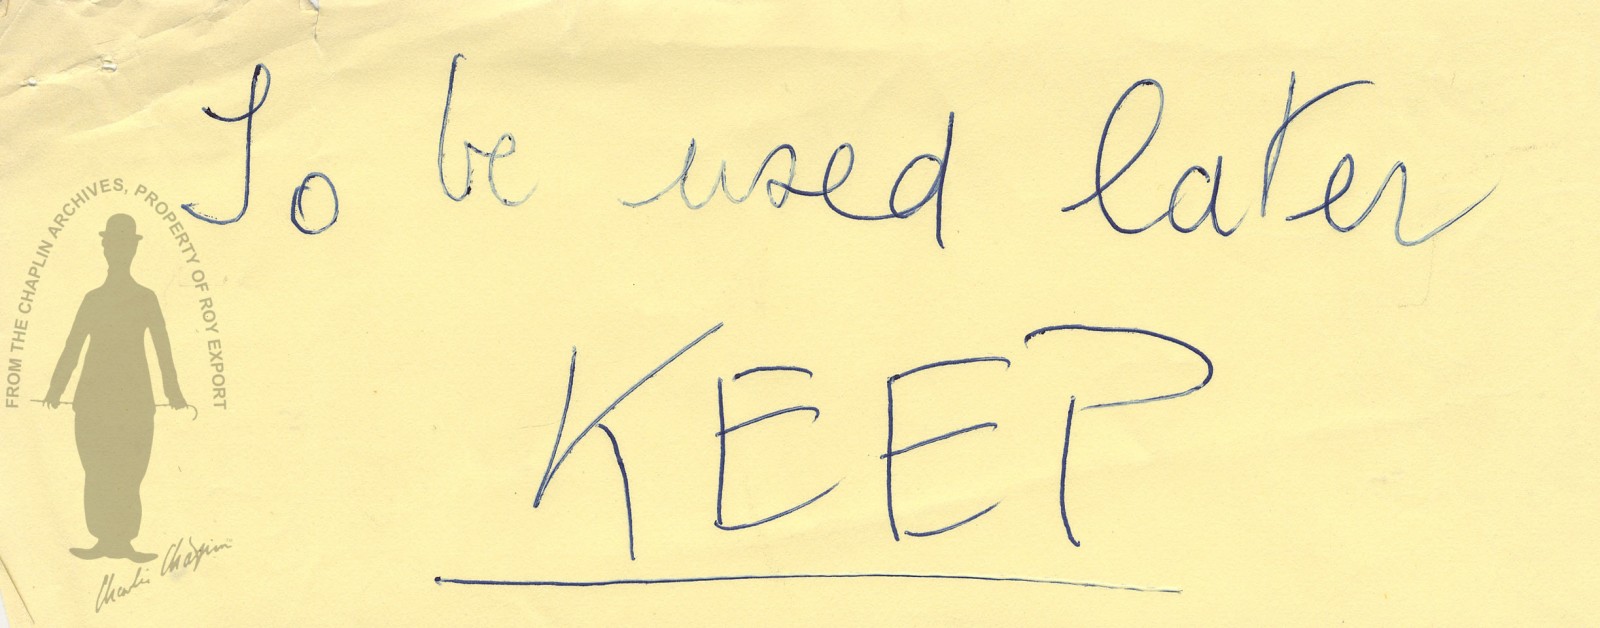 To be used later
KEEP
FROM THE CHAPLIN ARCHIVES, PROPERTY OF ROY EXPORT
Charlie Chaplin